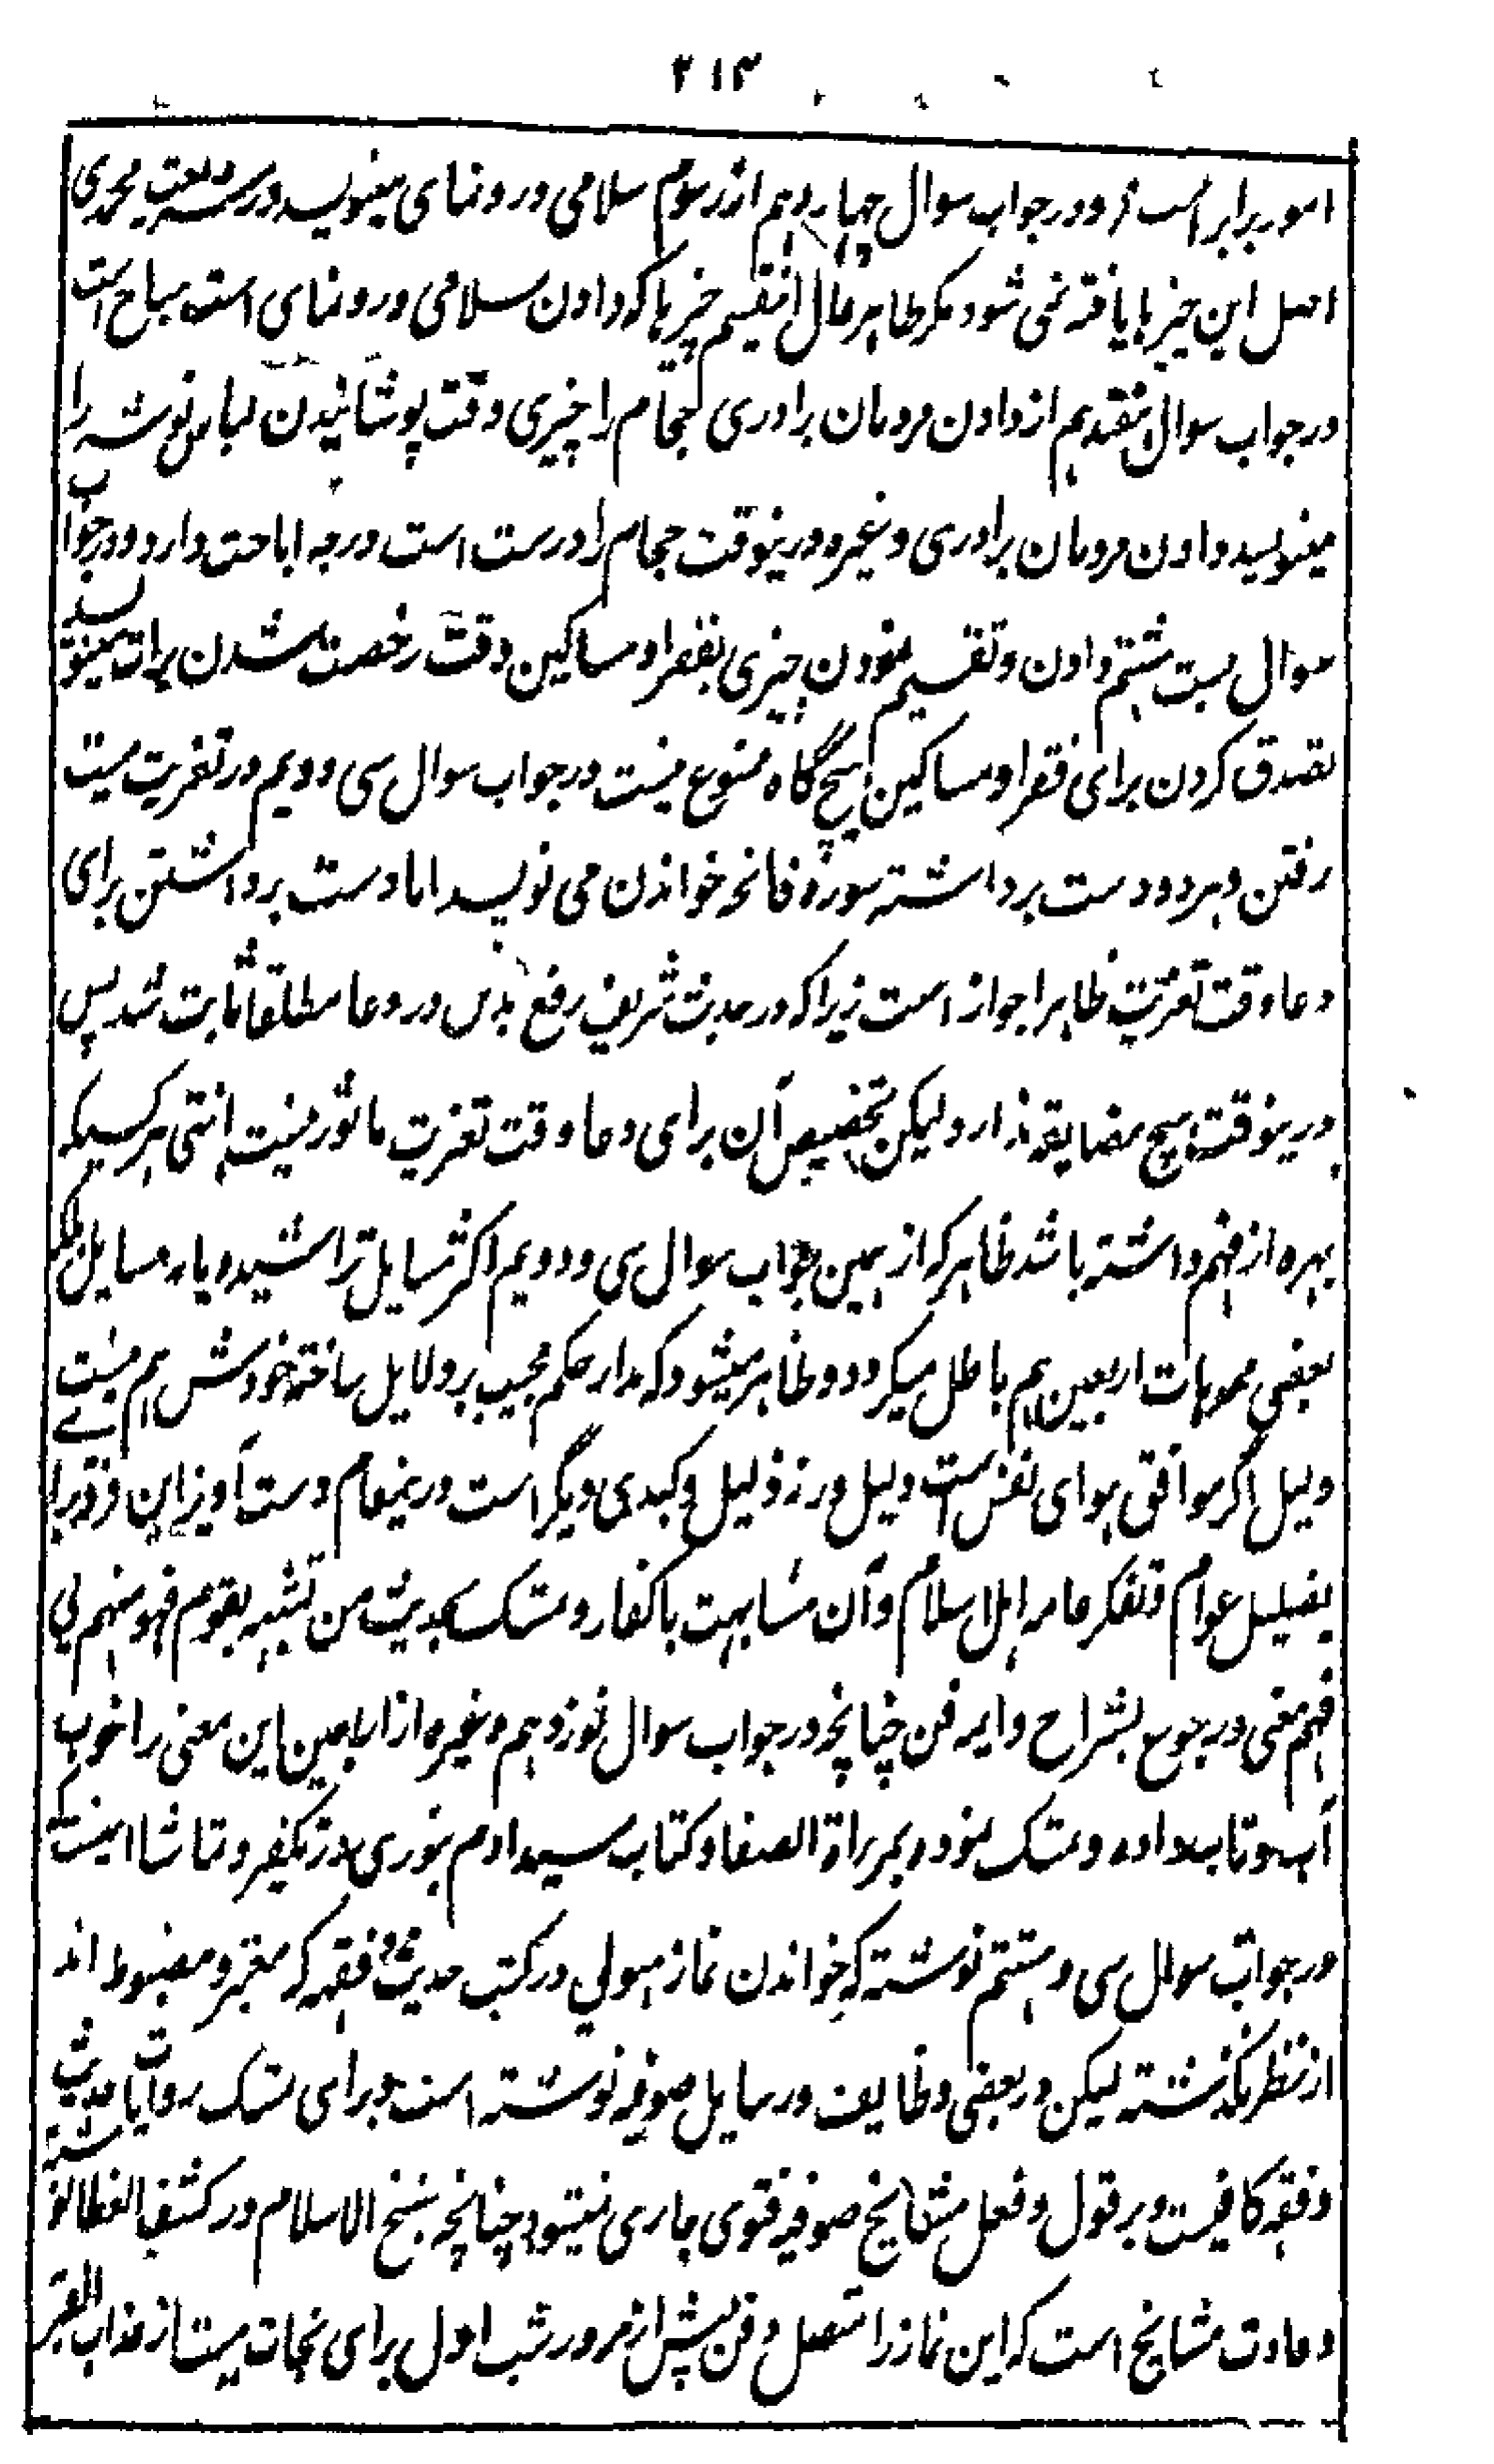 ۲۱۳
امور برابر است و در جواب سوال چهاردهم از رسوم سلامی و رونمای مینویسد در شریعت محمدی
اصل این چیزها یافته نمی شود مگر ظاهر حال تقسیم چیزها که دادن سلامی و رونمای است مباح است
در جواب سوال هفدهم از دادن مردمان برادری حجام را چیزی وقت پوشانیدن لباس نوشه را
مینویسد دادن مردمان برادری و غیره درینوقت حجام را درست است درجه اباحت دارد و در جواب
سوال بست هشتم دادن و تقسیم نمودن چیزی بفقرا و مساکین وقت رخصت شدن برات مینویسد
تصدق کردن برای فقرا و مساکین هیچ گاه ممنوع نیست در جواب سوال سی و دویم در تعزیت میت
رفتن و هر دو دست برداشته سوره فاتحه خواندن می نویسد اما دست برداشتن برای
دعا وقت تعزیت ظاهرا جواز است زیرا که در حدیث شریف رفع یدین در دعا مطلقا ثابت شد پس
درینوقت هیچ مضایقه ندارد لیکن تخصیص آن برای دعا وقت تعزیت ماثور نیست انتهی هر کسیکه
بهره از فهم داشته باشد ظاهر که از همین جواب سوال سی و دویم اکثر مسایل تراشیده یاره مسایل بلکه
بعضی مموهات اربعین هم باطل میگردد و ظاهر میشود که مدار حکم مجیب بر دلایل ساخته خودش هم نیست
دلیل اگر موافق هوای نفس است دلیل ورنه ذلیل و کبدی دیگر است درینمقام دست آویز این فرقه برای
تضلیل عوام و تکفیر عامه اهل اسلام و آن مشابهت با کفار و تمسک بحدیث من تشبه بقوم فهو منهم بی
فهم معنی و رجوع بشراح و ایمه فن چنانچه در جواب سوال نوزدهم و غیره از اباعین این معنی را خوب
آب و تاب داده و تمسک نموده بمرراة الصفا و کتاب سید آدم بنوری در تکفیر و تماشا اینست که
در جواب سوال سی و هشتم نوشته که خواندن نماز هولی در کتب حدیث و فقه که معتبر و مضبوط اند
از نظر نگذشته لیکن در بعضی وظایف و رسایل صوفیه نوشته است و برای تمسک روایات حدیث
و فقه کافیست و بر قول و فعل مشایخ صوفیه فتوی جاری نمیشود چنانچه شیخ الاسلام در کشف الغطا نوشته
و عادت مشایخ است که این نماز را متصل دفن پیش از مرور شب اول برای نجات میت از عذاب القبر